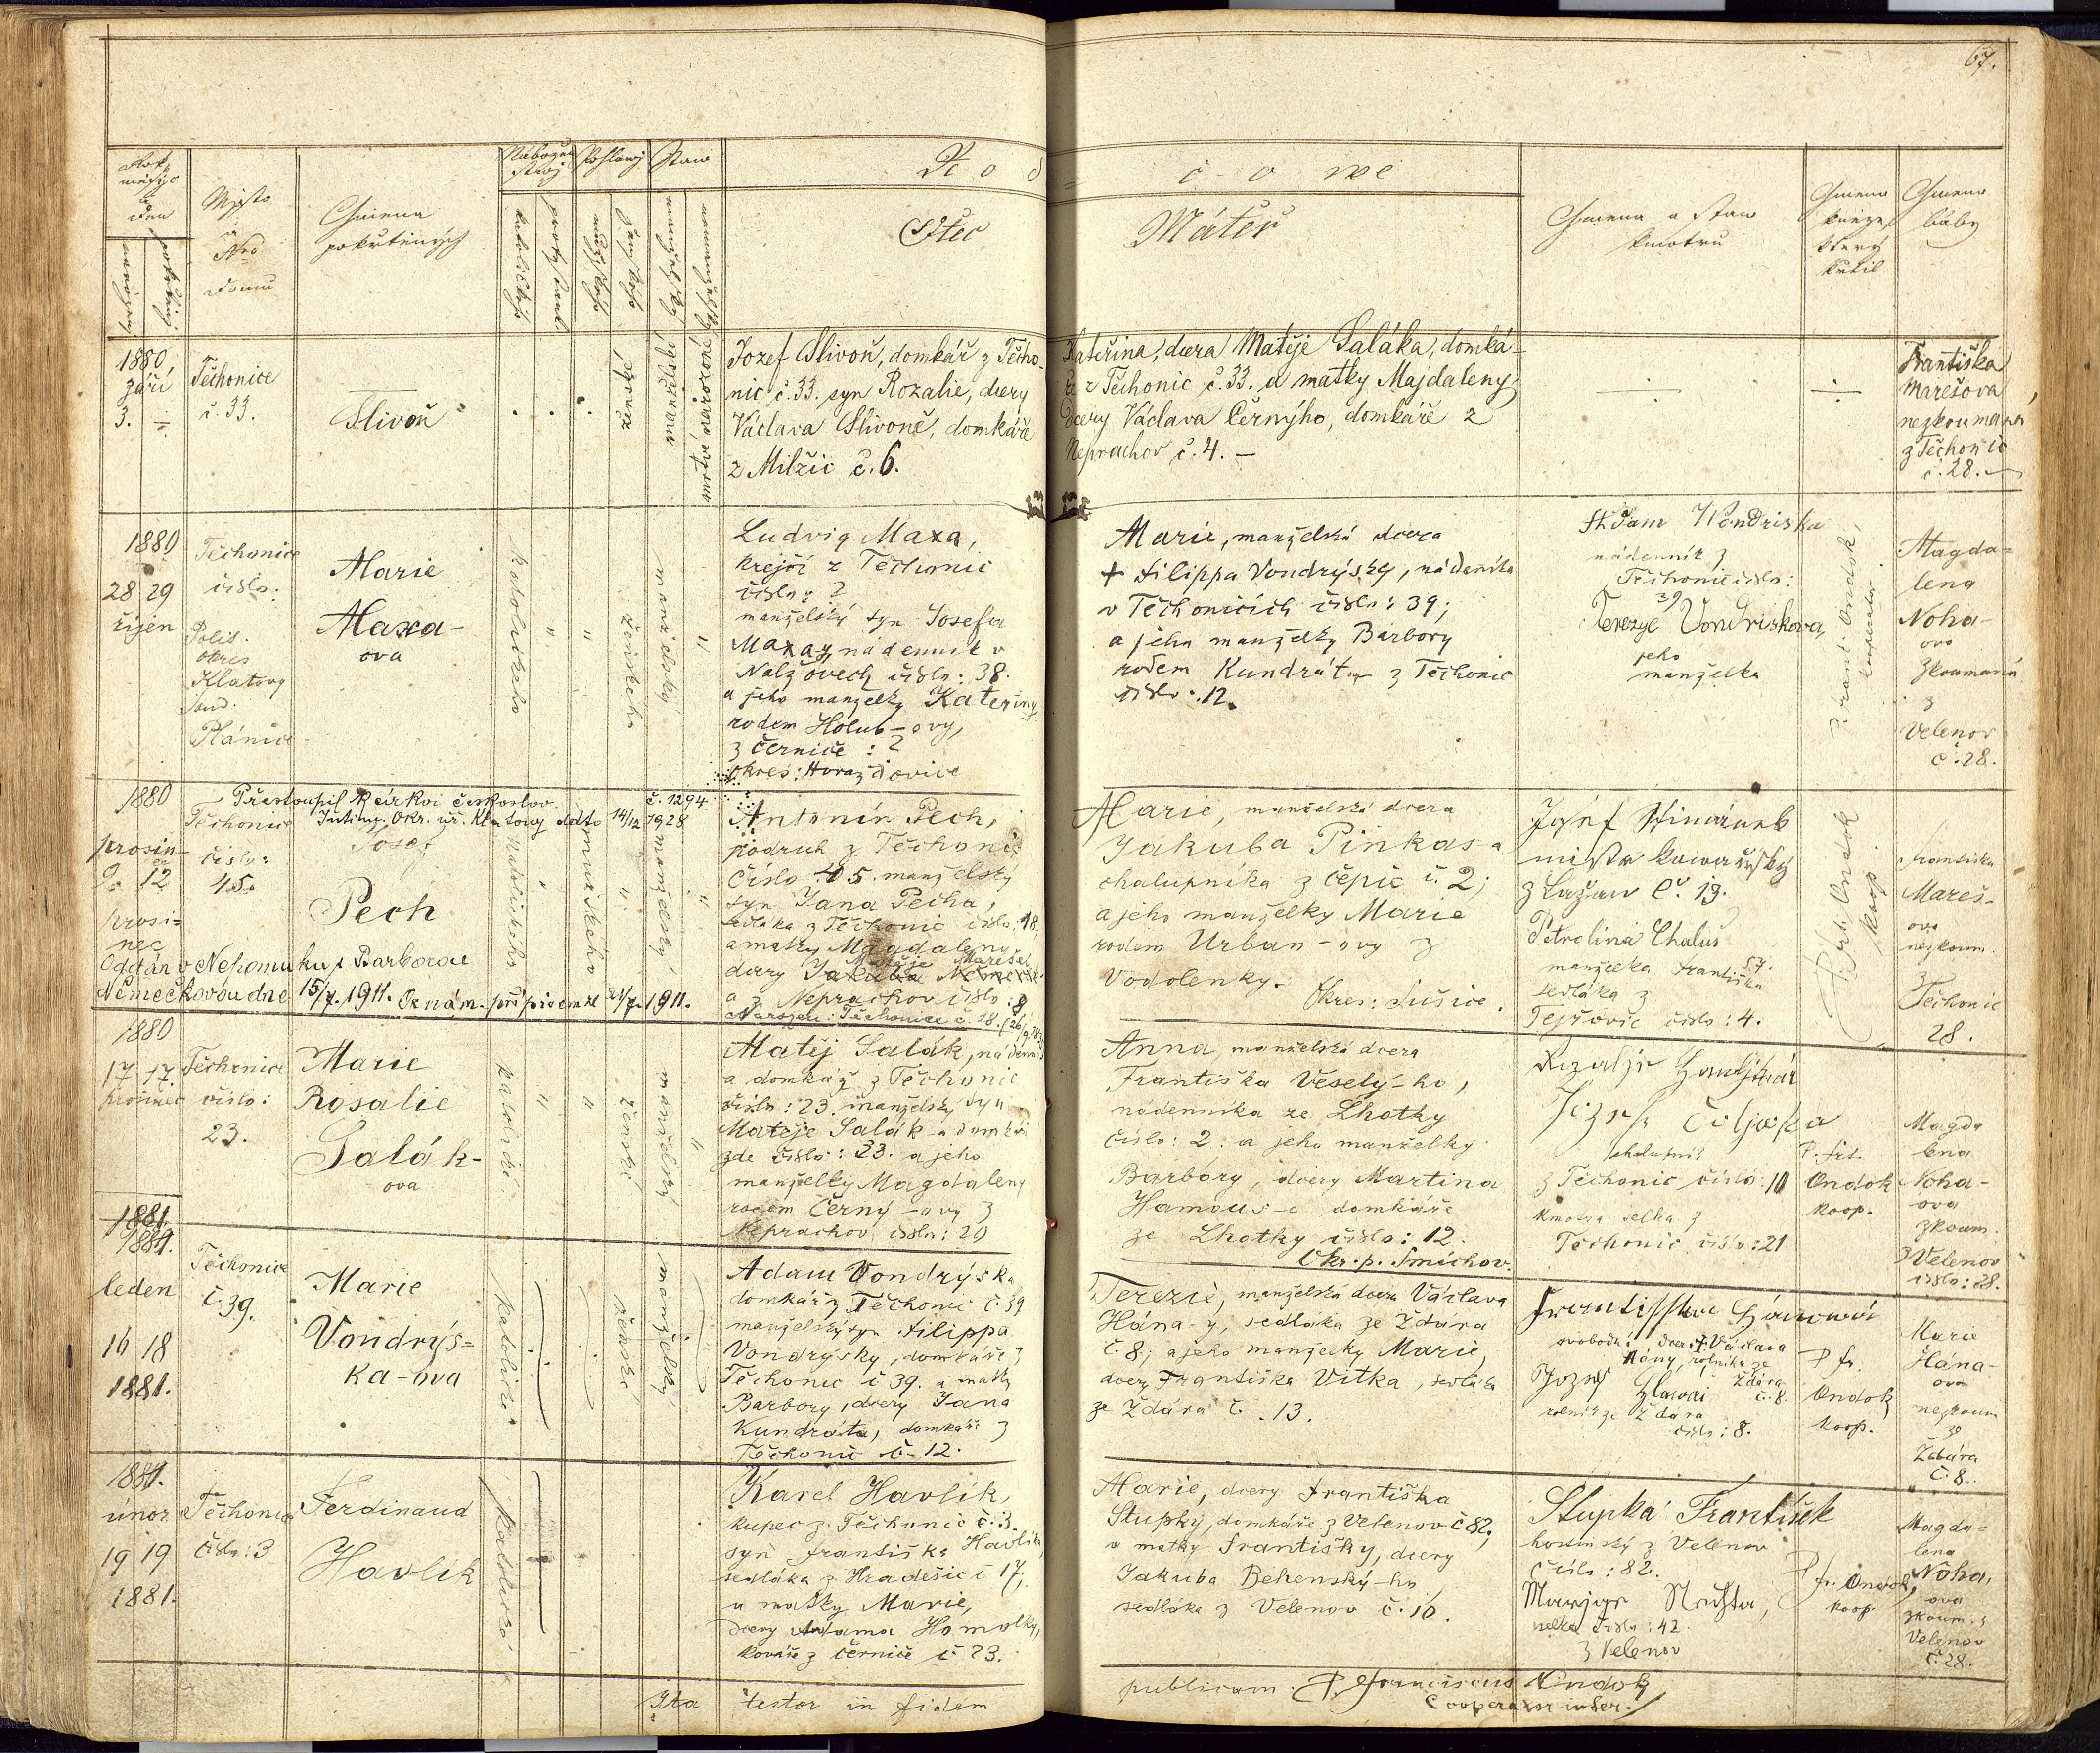 67.
Rok, měsýc a den
narození
pokřtění
Mjsto a Nro domu
Gmena pokřtěných
Nábožen stwj
katolický
Pohlawj
mužské
ženské
Staw
manželský
Rod
čowé
Otec
Máteř
Gmena a staw kmotrů
Gmeno kněze který křtil
Gmeno báby
1880
září
3. ÷
Těchonice
č. 33.
Slivoň
ženské
manželské
mrtvě narozené
Jozef Slivoň, domkář z Těcho-
nic č. 33. syn Rozalie, dcery
Václava Slivoně, domkáře
z Milžic č. 6.
Kateřina, dcera Matěje Saláka, domká-
ře z Těchonic č. 33. a matky Majdaleny,
dcery Václava Černýho, domkáře z
Neprachov č. 4. –
Františka
Marešova,
nezkouman
z Těchonic
č. 28.
1880
28 29
říjen
Těchonice
číslo:
Polit.
okres
Klatovy
soud.
Plánice
Marie
Maxa-
ova
katolického
ženského
manželský
Ludvig Maxa,
krejčí z Těchonic
číslo: 2
manželský syn Josefa
Maxay nádenník v
Nalžovech číslo: 38.
a jeho manželky Kateřiny
rodem Holub-ovy,
z Černice: 2
okres: Horažďovice
Marie, manželská dcera
+ Filippa Vondrýsky, nádeníka
v Těchonicích číslo: 39;
a jeho manželky Barbory
rodem Kundráta z Těchonic
číslo: 12.
Adam Wondriska
nádenník z
Těchonic číslo:
39
Terezye Vondriskova,
jeho
manželka
P. Frant. Ondok,
Magda-
lena
Noha-
ova
zkoumaná
z
Velenov
č. 28.
1880
Přestoupil k církvi českoslov.
Intim. Okr. úř. Klatovy ddto 14/12 1928 č. 1294
prosin-
9. 12
prosi-
nec
Těchonice
číslo:
45.
Josef
Pech
katolického
mužského
manželský
Oddán v Nepomuku s Barborou
Němečkovou dne 15/7. 1911. Oznám. přípisem ze 21/7. 1911.
Antonín Pech,
podruh z Těchonic
číslo 45. manželský
syn Jana Pecha,
sedláka z Těchonic číslo: 18.
a matky Magdaleny
dcery Jakuba Matěje Mareše
a z Neprachov číslo: 8
Narozen: Těchonice č. 18.
Marie, manželská dcera
Jakuba Pinkas-a
chalupníka z Čepic č. 2;
a jeho manželky Marie
rodem Urban-ovy z
Vodolenky.
Okres: Sušice.
z Lažan č. 19.
Petrolina Chalus
manželka Františka
sedláka z
Tejřovic číslo: 4.
P. Frt. Ondok
koop.
Františka
Mareš-
ova
nezkoum.
z
Těchonic
28.
1880
17 17.
prosinec
Těchonice
číslo:
23.
Marie
Rosalie
Salák-
ova
katolické
ženské
manželský
Matěj Salák, nádenník
a domkář z Těchonic
číslo: 23. manželský syn
Matěje Salák-a domkáře
zde číslo: 23. a jeho
manželky Magdaleny
rodem Černy-ovy z
Neprachov číslo: 20
Anna, manželská dcera
Františka Veselý-ho,
nádenníka ze Lhotky
číslo: 2: a jeho manželky
Barbory, dcery Martina
Hamous-e domkáře
ze Lhotky číslo: 12.
Okr. p. Smíchov.
chalupník
z Těchonic číslo: 10
kmotra selka z
Těchonic číslo: 21
P. frt.
Ondok
koop.
Magda
lena
Noha-
ova
zkoum.
z Velenov
číslo: 28.
1881
1881.
leden
16 18
1881.
Těchonice
č. 39.
Marie
Vondrýs-
ka-ova
katolické
ženské
manželský
Adam Vondrýska
domkář z Těchonic č. 39
manželský syn Filippa
Vondrýsky, domkáře z
Těchonic č 39. a matky
Barbory, dcery Jana
Kundráta, domkáře z
Těchonic č. 12.
Terezie, manželská dcera Václava
Hána-y, sedláka ze Ždára
č. 8; a jeho manželky Marie,
dcery Františka Vítka, sedláka
ze Ždára č. 13.
svobodná dcera + Václava
Hány, rolníka ze
Ždára
č. 8.
rolník ze Ždára
číslo: 8.
P. fr.
Ondok
koop.
Marie
Hána-
ova
nezkoum
ze
Ždára
č. 8.
1881.
únor
19 19
1881.
Těchonice
číslo: 3
Ferdinand
Havlík
katolické
Karel Havlík,
kupec z Těchonic č. 3.
syn Františka Havlíka,
sedláka z Hradešic č 17;
a matky Marie,
dcery Adama Homolky,
kováře z Černice č. 23.
Marie, dcery Františka
Stupky, domkáře z Velenov č 82,
a matky Františky, dcery
Jakuba Behenský-ho,
sedláka z Velenov č. 10.
Stupka František
hostinský z Velenov
číslo: 82.
selka číslo: 42.
z Velenov
P. fr. Ondok,
koop.
Magda-
lena
Noha,
ova
zkoum. z
Velenov
č. 28.
Ita testor in fidem
publicam. P. Franciscus Ondok
Cooperator